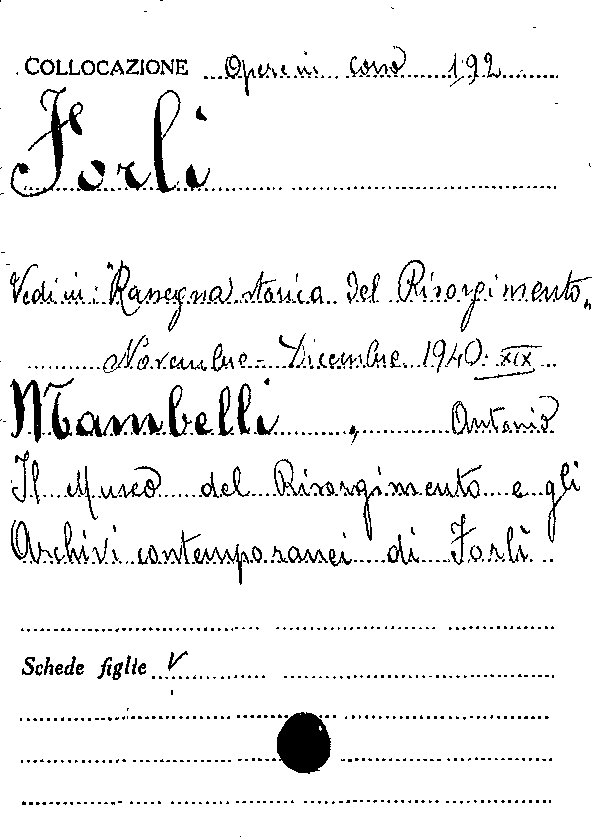 COLLOCAZIONE Opere in corso 192
Forlì
Vedi in: "Rassegna storica del Risorgimento„
Novembre - Dicembre 1940. XIX
Mambelli, Antonio
Il Museo del Risorgimento e gli
Archivi contemporanei di Forlì
Schede figlie V